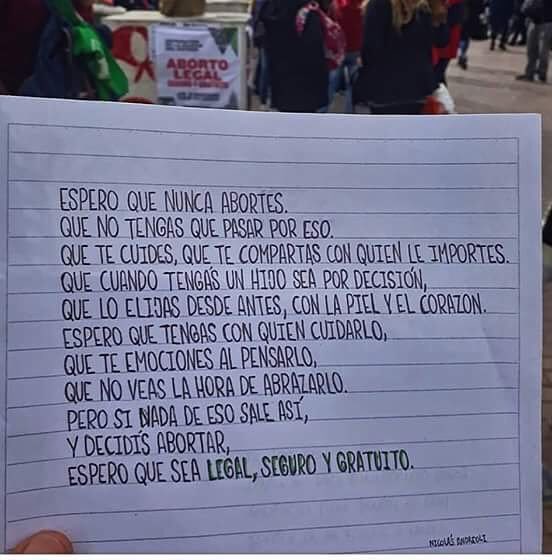 ABORTO
LEGAL
SEGURO Y GRATUITO
ESPERO QUE NUNCA ABORTES.
QUE NO TENGAS QUE PASAR POR ESO.
QUE TE CUIDES, QUE TE COMPARTAS CON QUIEN LE IMPORTES.
QUE CUANDO TENGAS UN HIJO SEA POR DECISIÓN,
QUE LO ELIJAS DESDE ANTES, CON LA PIEL Y EL CORAZON.
ESPERO QUE TENGAS CON QUIEN CUIDARLO,
QUE TE EMOCIONES AL PENSARLO,
QUE NO VEAS LA HORA DE ABRAZARLO.
PERO SI NADA DE ESO SALE ASÍ,
Y DECIDÍS ABORTAR,
ESPERO QUE SEA LEGAL, SEGURO Y GRATUITO.
NICOLÁS ANDREOLI